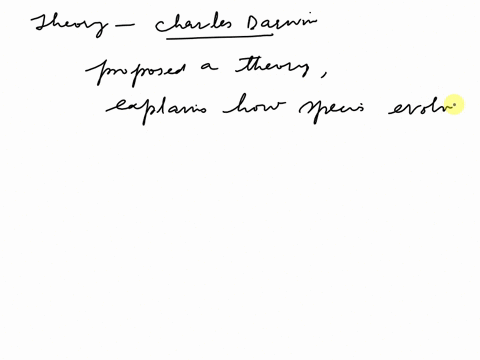 Theory — Charles Darwin
proposed a theory,
explains how specis evolv